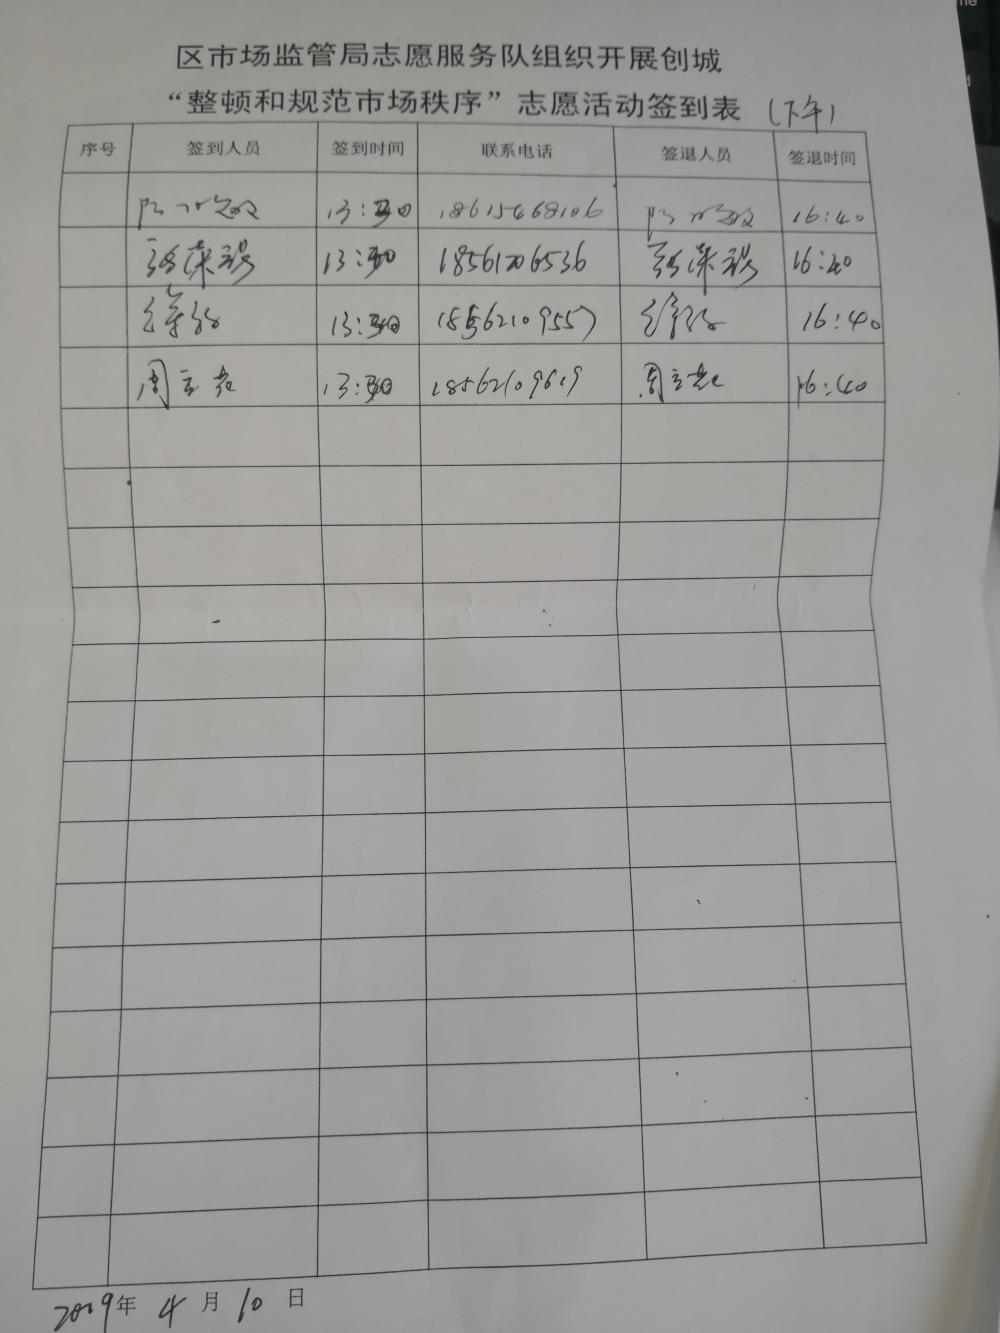 区市场监管局志愿服务队组织开展创城
“整顿和规范市场秩序”志愿活动签到表 (下午)
序号 签到人员 签到时间 联系电话 签退人员 签退时间
13:30 18615468106 16:40
13:30 18561206536 16:40
13:30 18562109557 16:40
周 13:30 18562109619 周 16:40
2019年 4 月 10 日